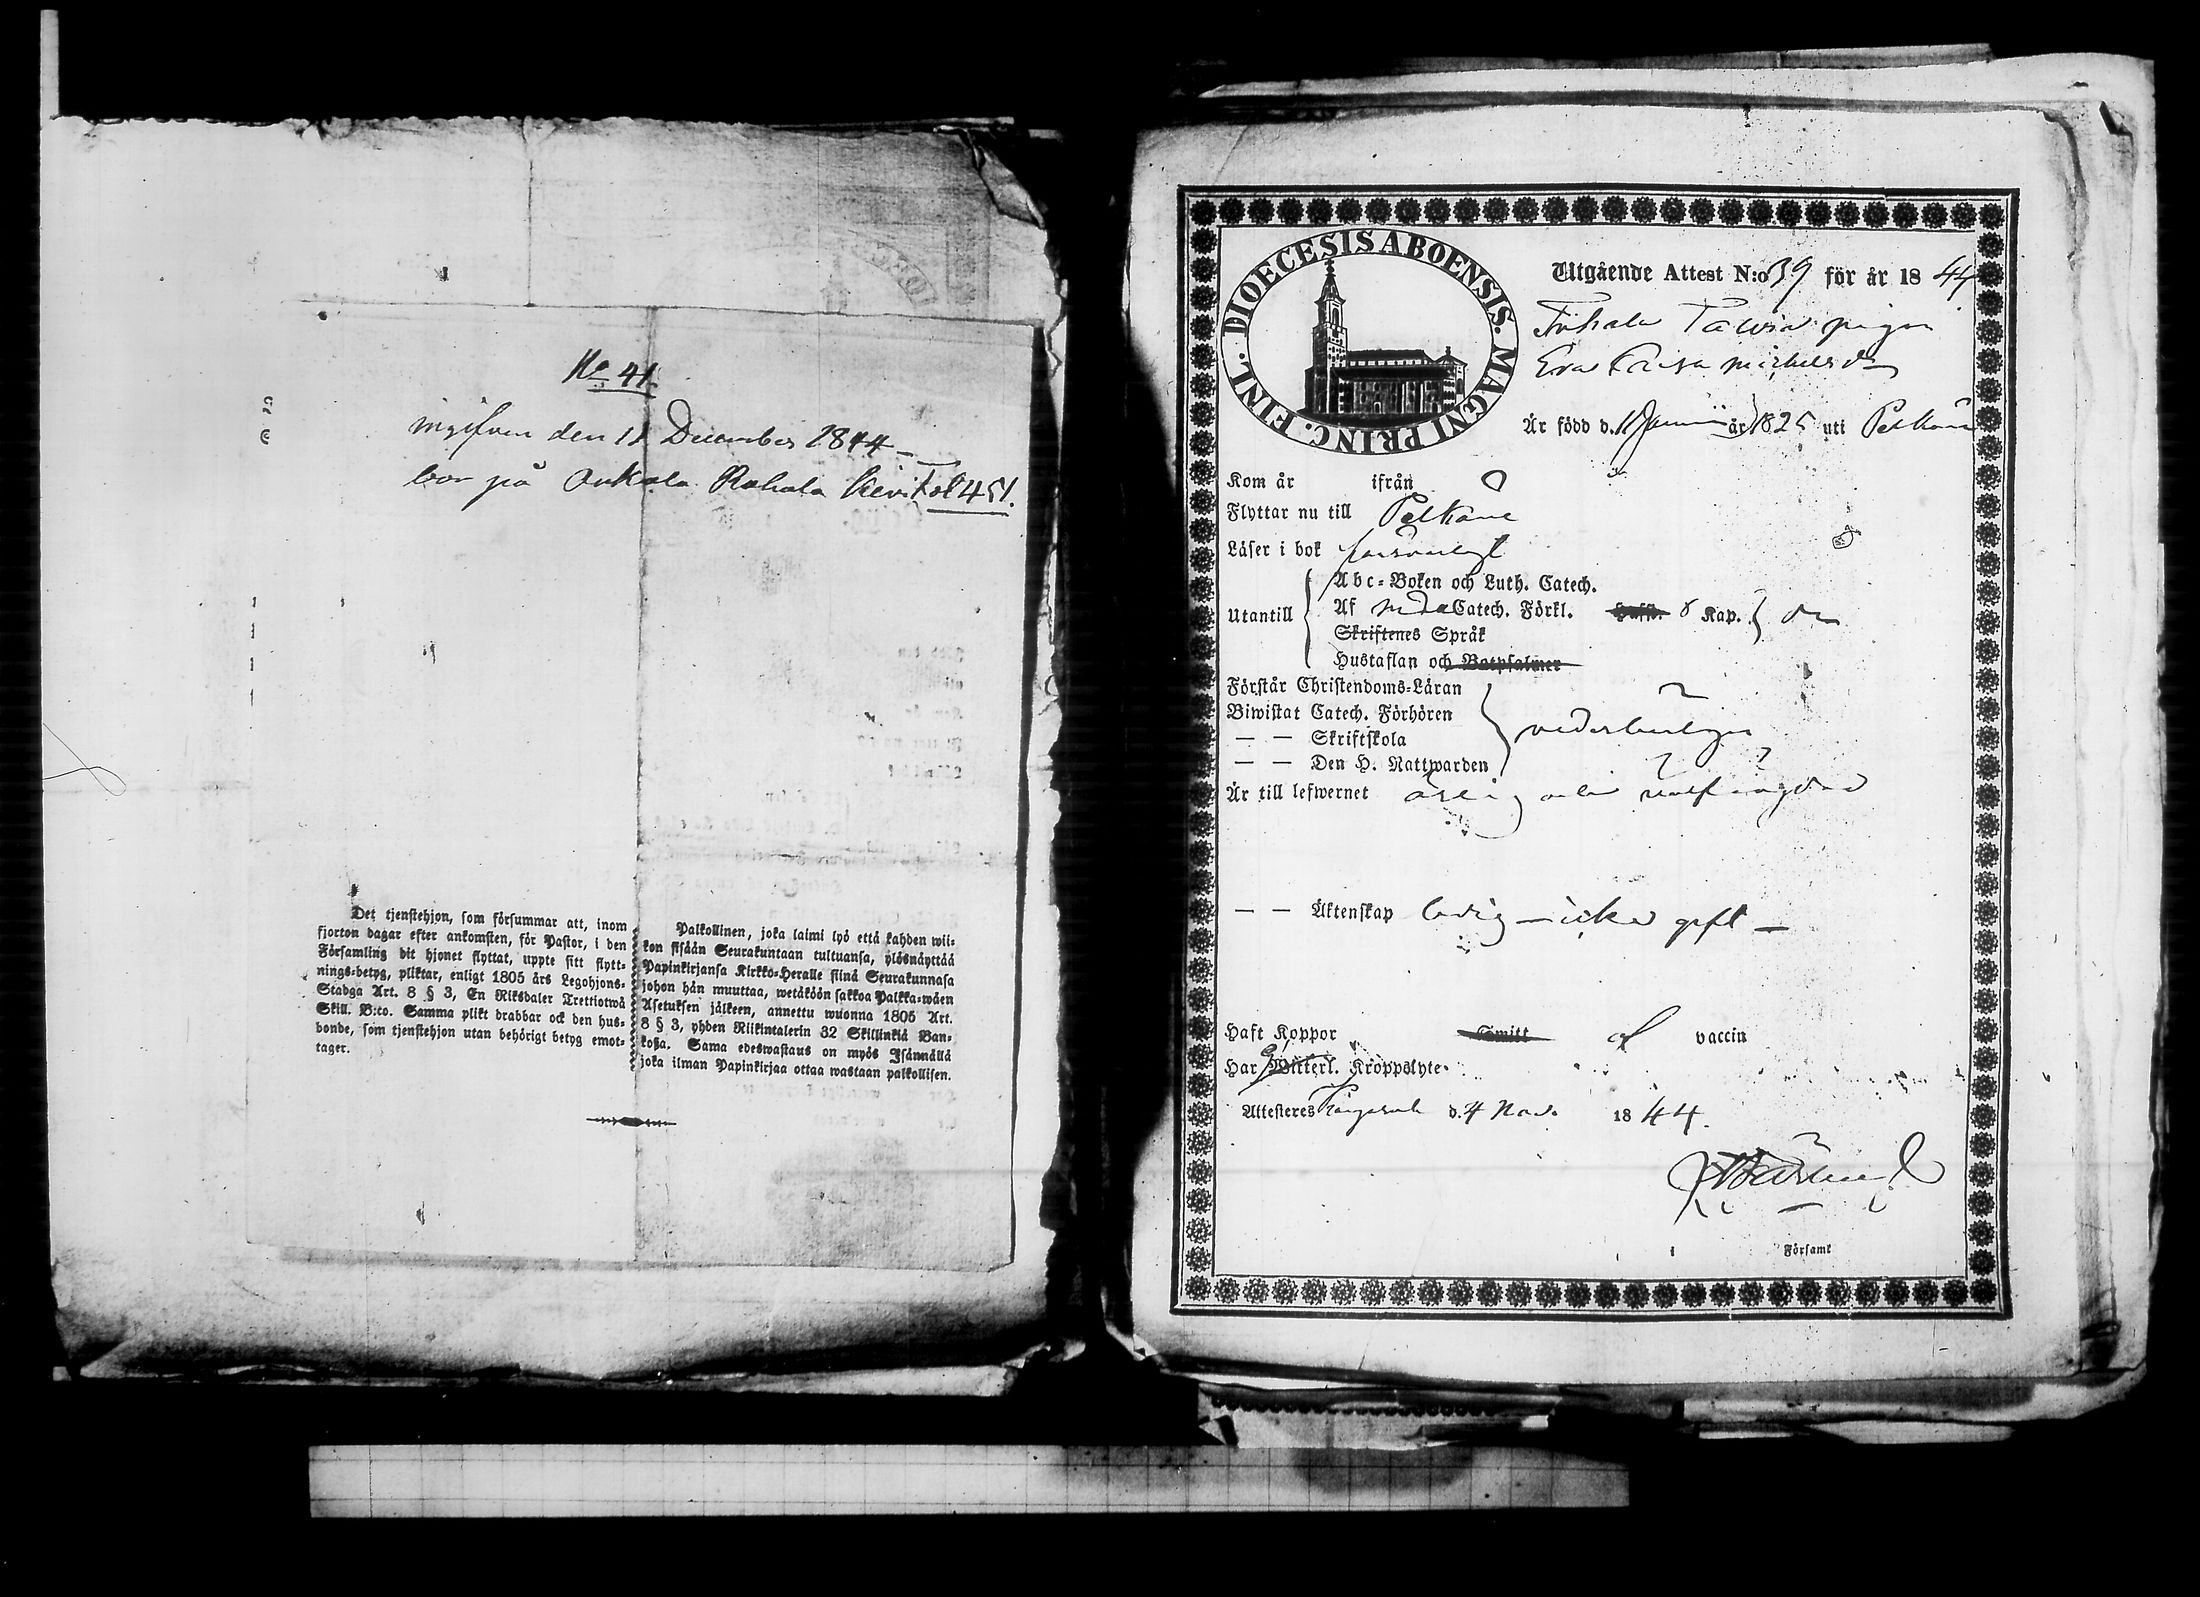 No 41.
ingifven den 11 December 1844
bor på Onkala Rahala Kevi Fol 451.
Det tjenstehjon, som försummar att, inom
fjorton dagar efter ankomsten, för Pastor, i den
Församling dit hjonet flyttat, uppte sitt flytt-
nings-betyg, pliktar, enligt 1805 års Legohjons-
Stadga Art. 8 § 3, En Riksdaler Trettiotwå
Skill. B:co. Samma plikt drabbar ock den hus-
bonde, som tjenstehjon utan behörigt betyg emot-
tager.
Palkollinen, joka laimi lyö että kahden wii-
kon sisään Seurakuntaan tultuansa, ylösnäyttää
Papinkirjansa Kirkko-Heralle siinä Seurakunnasa
johon hän muuttaa, wetäköön sakkoa Palkka-wäen
Asetuksen jälkeen, annettu wuonna 1805 Art.
8 § 3, yhden Riikintalerin 32 Skillinkiä Ban-
koßa. Sama edeswastaus on myös Isännällä
joka ilman Papinkirjaa ottaa wastaan palkollisen.
DIOECESIS ABOENSIS. MAGNI PRINC. FINL.
Utgående Attest N:o 39 för år 1844
pigan
Eva Michelsdr
Är född d. 1 Januarii år 1825 uti Pelkäne
Kom år ifrån 0
Flyttar nu till Pelkäne
Läser i bok försvarligt
Utantill
Abc-Boken och Luth. Catech.
Af Catech. Förkl. 8 Kap.
Skriftenes Språk
Hustaflan och Botpsalmer
Förstår Christendoms-Läran
Biwistat Catech. Förhören
— — Skriftskola
— — Den H. Nattwarden
vederbörligen
Är till lefwernet ärlig och
— — Äktenskap ledig — icke gift —
Haft Koppor Smitt af vaccin
Har Witterl. Kroppslyte
Attesteres d. 4 Nov. 1844.
Församl